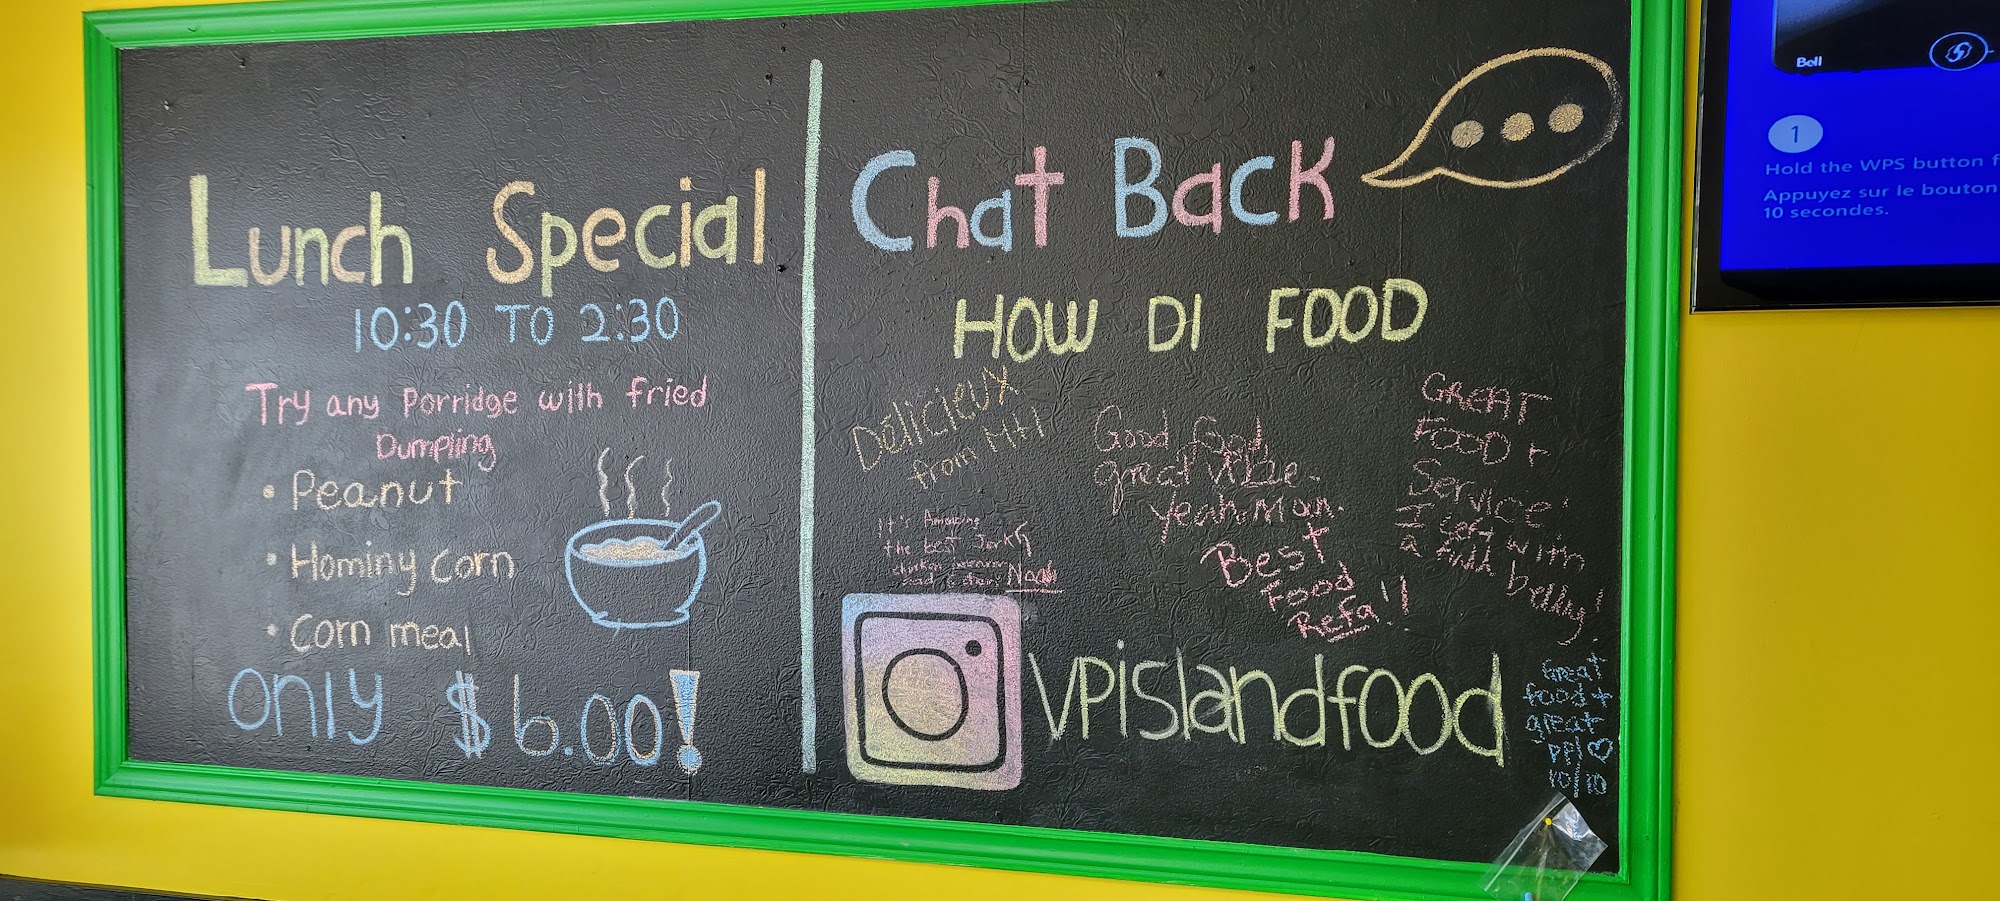 Lunch Special
10:30 TO 2:30
Try any Porridge with fried
Dumpling
• Peanut
• Hominy corn
• Corn meal
only $6.00!
Chat Back
HOW DI FOOD
Délicieux
from MH
Good food,
great vibe.
Yeah Man.
GREAT
FOOD +
Service!
I left with
a full belly!
It's Amazing
the best Jerk
chicken
Noah
Best
Food
Refa!!
vpislandfood
Great
food +
great
ppl ♡
10/10
Bell
1
Hold the WPS button f
Appuyez sur le bouton
10 secondes.